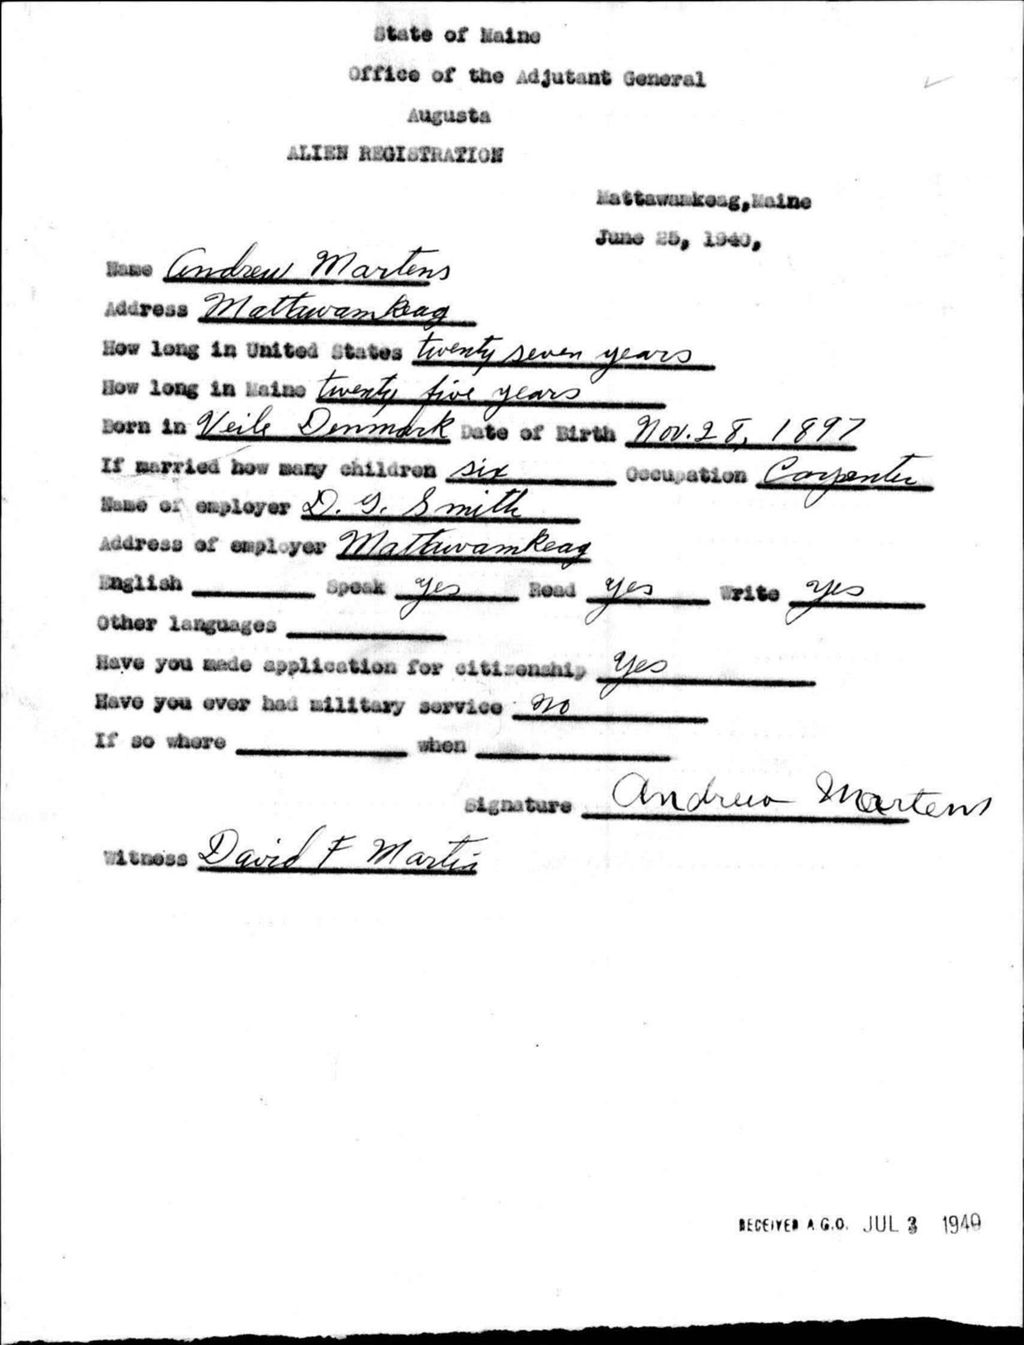 State of Maine
Office of the Adjutant General
Augusta
ALIEN REGISTRATION
Mattawamkeag, Maine
June 25, 1940,
Name Andrew Martens
Address Mattawamkeag
How long in United States twenty seven years
How long in Maine twenty five years
Born in Veile Denmark Date of Birth Nov. 28, 1897
If married how many children six Occupation Carpenter
Name of employer D. G. Smith
Address of employer Mattawamkeag
English Speak yes Read yes Write yes
Other languages
Have you made application for citizenship Yes
Have you ever had military service no
If so where when
Signature Andrew Martens
Witness David F Martin
RECEIVED A.G.O. JUL 3 1940